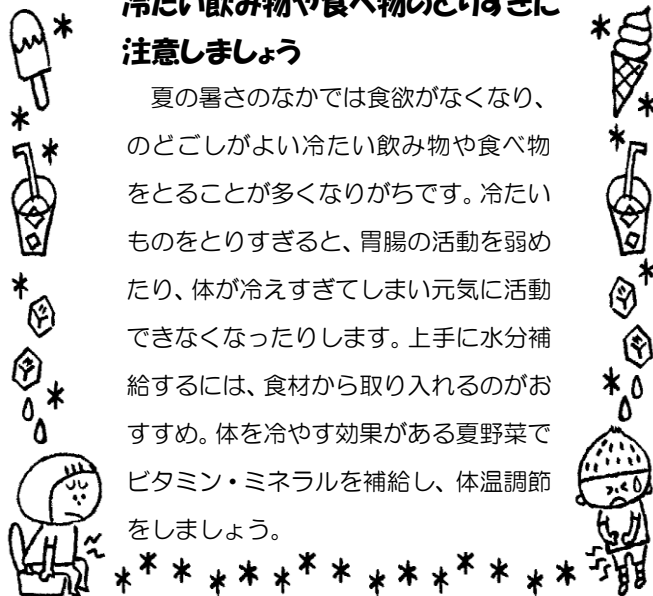 冷たい飲み物や食べ物のとりすぎに
注意しましょう
夏の暑さのなかでは食欲がなくなり、
のどごしがよい冷たい飲み物や食べ物
をとることが多くなりがちです。冷たい
ものをとりすぎると、胃腸の活動を弱め
たり、体が冷えすぎてしまい元気に活動
できなくなったりします。上手に水分補
給するには、食材から取り入れるのがお
すすめ。体を冷やす効果がある夏野菜で
ビタミン・ミネラルを補給し、体温調節
をしましょう。